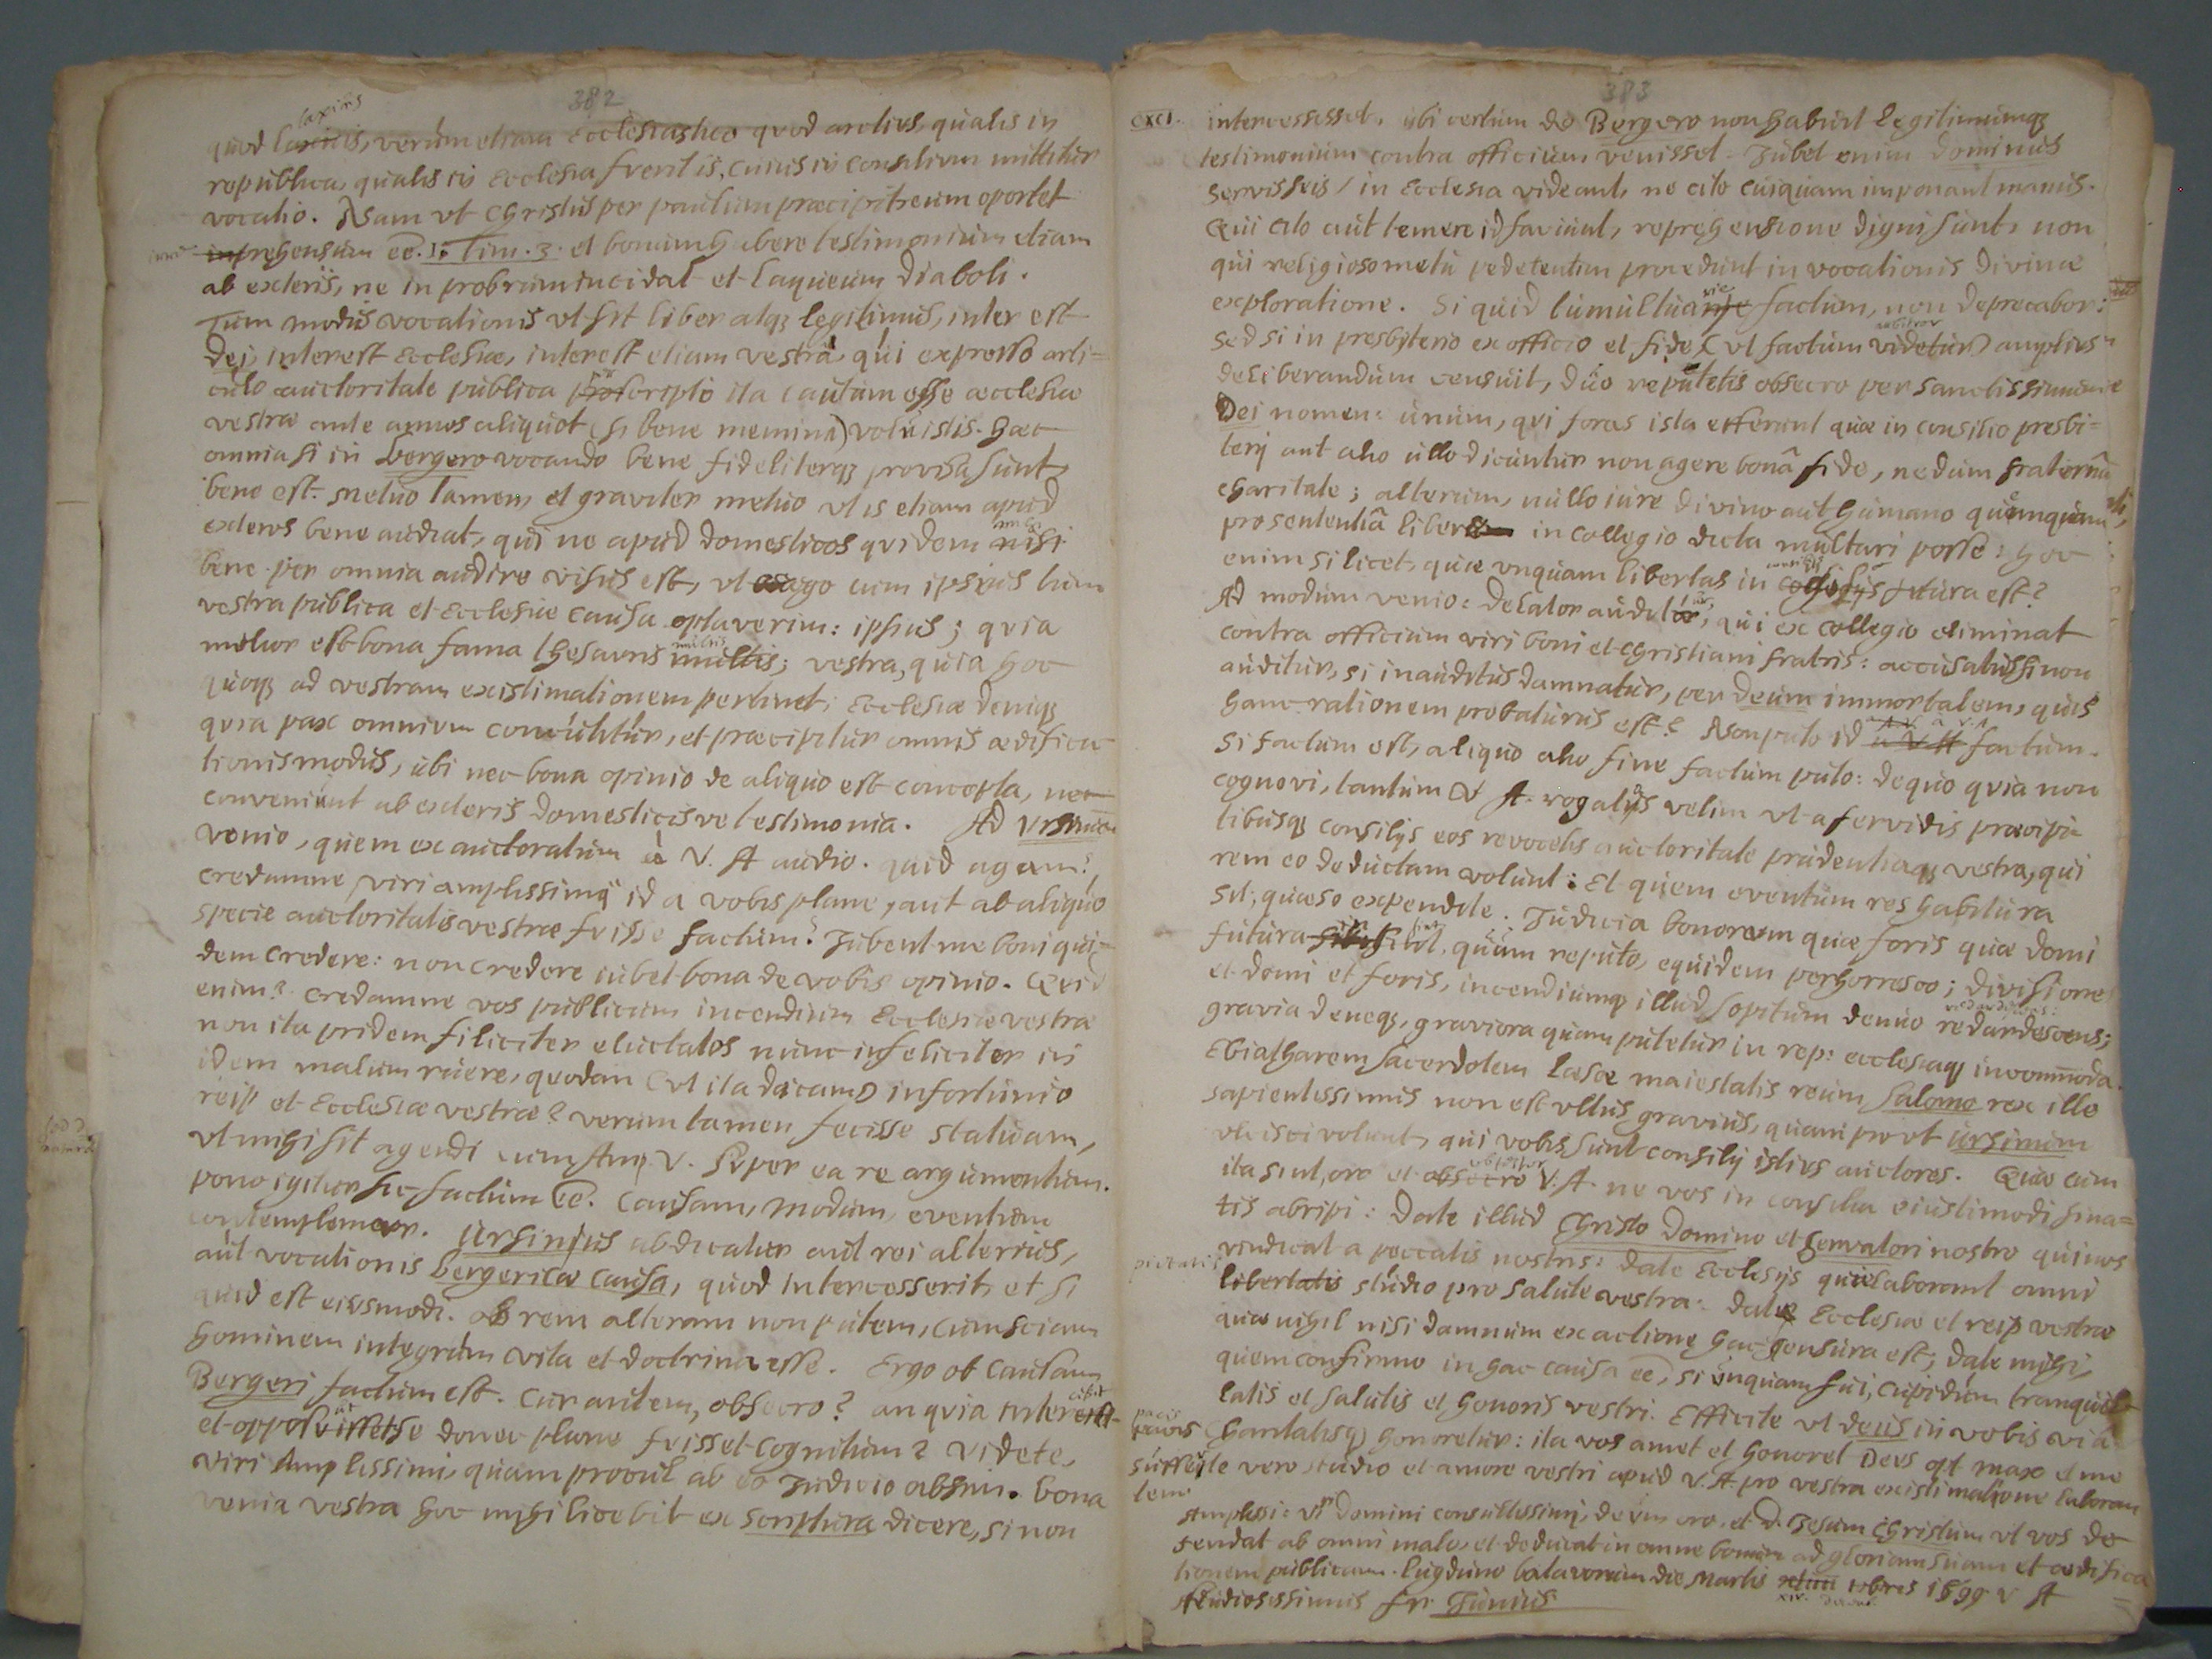 382
laxius
quod laxius, verùm etiam Ecclesiastico quod arctius, qualis in
republica, qualis in Ecclesia fuerit is, cuius in consilium mittitur
vocatio. Nam vt Christus per paulum præcipit, eum oportet
inreprehensum ee. 1. Tim. 3. et bonum habere testimonium etiam
ab exteris, ne in probrum incidat et laqueum Diaboli.
Tum modus vocationis vt sit liber atq; legitimus, inter est
Dej, interest Ecclesiæ, interest etiam vestra, qui expresso arti=
culo auctoritate publica proscripto ita cautum esse ecclesiæ
vestræ ante annos aliquot (si bene memini) voluistis. hæc
omnia si in bergero vocando bene fideliterq; provisa sunt,
bene est. metuo tamen, et graviter metuo vt is etiam apud
exteros bene audiat, qui ne apud domesticos quidem nisi
bene per omnia audire visus est, vt ego cum ipsius tum
vestra publica et Ecclesiæ causa optaverim: ipsius; quia
melior est bona fama thesauris multis; vestra, quia hoc
quoq; ad vestram existimationem pertinet; Ecclesiæ deniq;
quia pax omnium concutitur, et præcipitur omnis ædifica
tionis modus, ubi nec bona opinio de aliquo est concepta, nec
conveniunt ab exteris domesticisve testimonia. Ad Vrsinum
venio, quem exauctoratum à V. A audio. quid agam?
credamne, viri amplissimi id a vobis plane, aut ab aliquo
specie auctoritatis vestræ fuisse factum? Jubent me boni qui=
dem credere: non credere iubet bona de vobis opinio. Quid
enim? credamne vos publicum incendium Ecclesiæ vestræ
non ita pridem feliciter eluctatos nunc infeliciter in
idem malum ruere, quodam (vt ita dicam) infortunio
reip et Ecclesiæ vestræ? verum tamen fecisse statuam,
vt mihi sit agendi cum Amp V. super ea re argumentum.
pono igitur sic factum ee. Causam, Modum, eventum
contemplemur. Ursinus abdicatur aut rei alterius,
aut vocationis bergericæ causa, quod intercesserit, et si
quid est eiusmodi. ob rem alteram non putem, cum sciam
hominem integrum vita et doctrina esse. Ergo ob causam
Bergeri factum est. Cur autem, obsecro? an quia inter
et opposuisset se donec plane fuisset cognitum? Videte,
viri Amplissimi, quam procul ab eo Judicio absim. bona
venia vestra hoc mihi licebit ex scriptura dicere, si non
383
intercessisset, ubi certum de Bergero non habuit legitimumq;
testimonium contra officium venisset. Jubet enim Dominus
servis suis, in Ecclesia videant, ne cito cuiquam imponant manus.
Qui cito aut temere id faciunt, reprehensione digni sunt, non
qui religioso metu pedetentim procedunt in vocationis divinæ
exploratione. Si quid tumultuarie factum, non deprecabor:
arbitror
sed si in presbyterio ex officio et fide (vt factum videtur) amplius
deliberandum censuit, duo reputetis obsecro per sanctissimum
Dei nomen: unum, qui foras ista efferunt quæ in consilio presbi=
terij aut alio ullo dicuntur non agere bonâ fide, nedum fraternâ
charitate; alterum, nullo iure divino aut humano quemquam
pro sententiâ libere in collegio dicta multari posse: hoc
enim si licet, quæ vnquam libertas in futura est?
Ad modum venio: Delator auditur, qui ex collegio eliminat
contra officium viri boni et christiani fratris: accusatus si non
auditur, si inauditus damnatur, per Deum immortalem, quis
hanc rationem probaturus est? Non puto id a V A factum.
Si factum est, aliquo alio fine factum puto: de quo quia non
cognovi, tantum V A. rogatas velim vt a fervidis præcipi
tibusq; consilijs eos revocetis auctoritate prudentiaq; vestra, qui
rem eo deductam volunt: Et quem eventum res habitura
sit, quæso expendite. Judicia bonorum quæ foris quæ domi
futura sint, quum reputo, equidem perhorresco; divisiones
et domi et foris, incendiumq illud sopitum denuo redardescens;
gravia deneq;, graviora quam putetur in rep: ecclesiaq; incommoda.
Ebiatharem sacerdotem læsæ maiestatis reum Salomo rex ille
sapientissimus non est vltus gravius, quam pro vt Ursinum
vlcisci volunt, qui vobis sunt consilij istius auctores. Quæ cum
ita sint, oro et obsecro V. A. ne vos in consilia eiusmodi sina=
tis abripi: Date illud Christo Domino et Servatori nostro qui nos
vindicat a peccatis nostris: Date Ecclesijs quæ laborant omni
pietatis
libertatis studio pro salute vestra: date Ecclesiæ et reip vestræ
quæ nihil nisi damnum ex actione hac sensura est; date mihi,
quem confirmo in hac causa ee, si unquam fui, cupidum tranquil
latis et salutis et honoris vestri. Efficite vt deus in vobis via
pacis
charitatisq; honoretur: ita vos amet et honoret Deus opt max et me
vero studio et amore vestri apud V. A. pro vestra existimatione laboran
tem
Ampliss: Vri Domini consultissimi, deum oro, et D. Jesum Christum vt vos de
fendat ab omni malo, et deducat in omne bonum ad gloriam suam et ædifica
tionem publicam. Lugduno batavorum die Martis 1599 V A
studiosissimus Fr. Junius